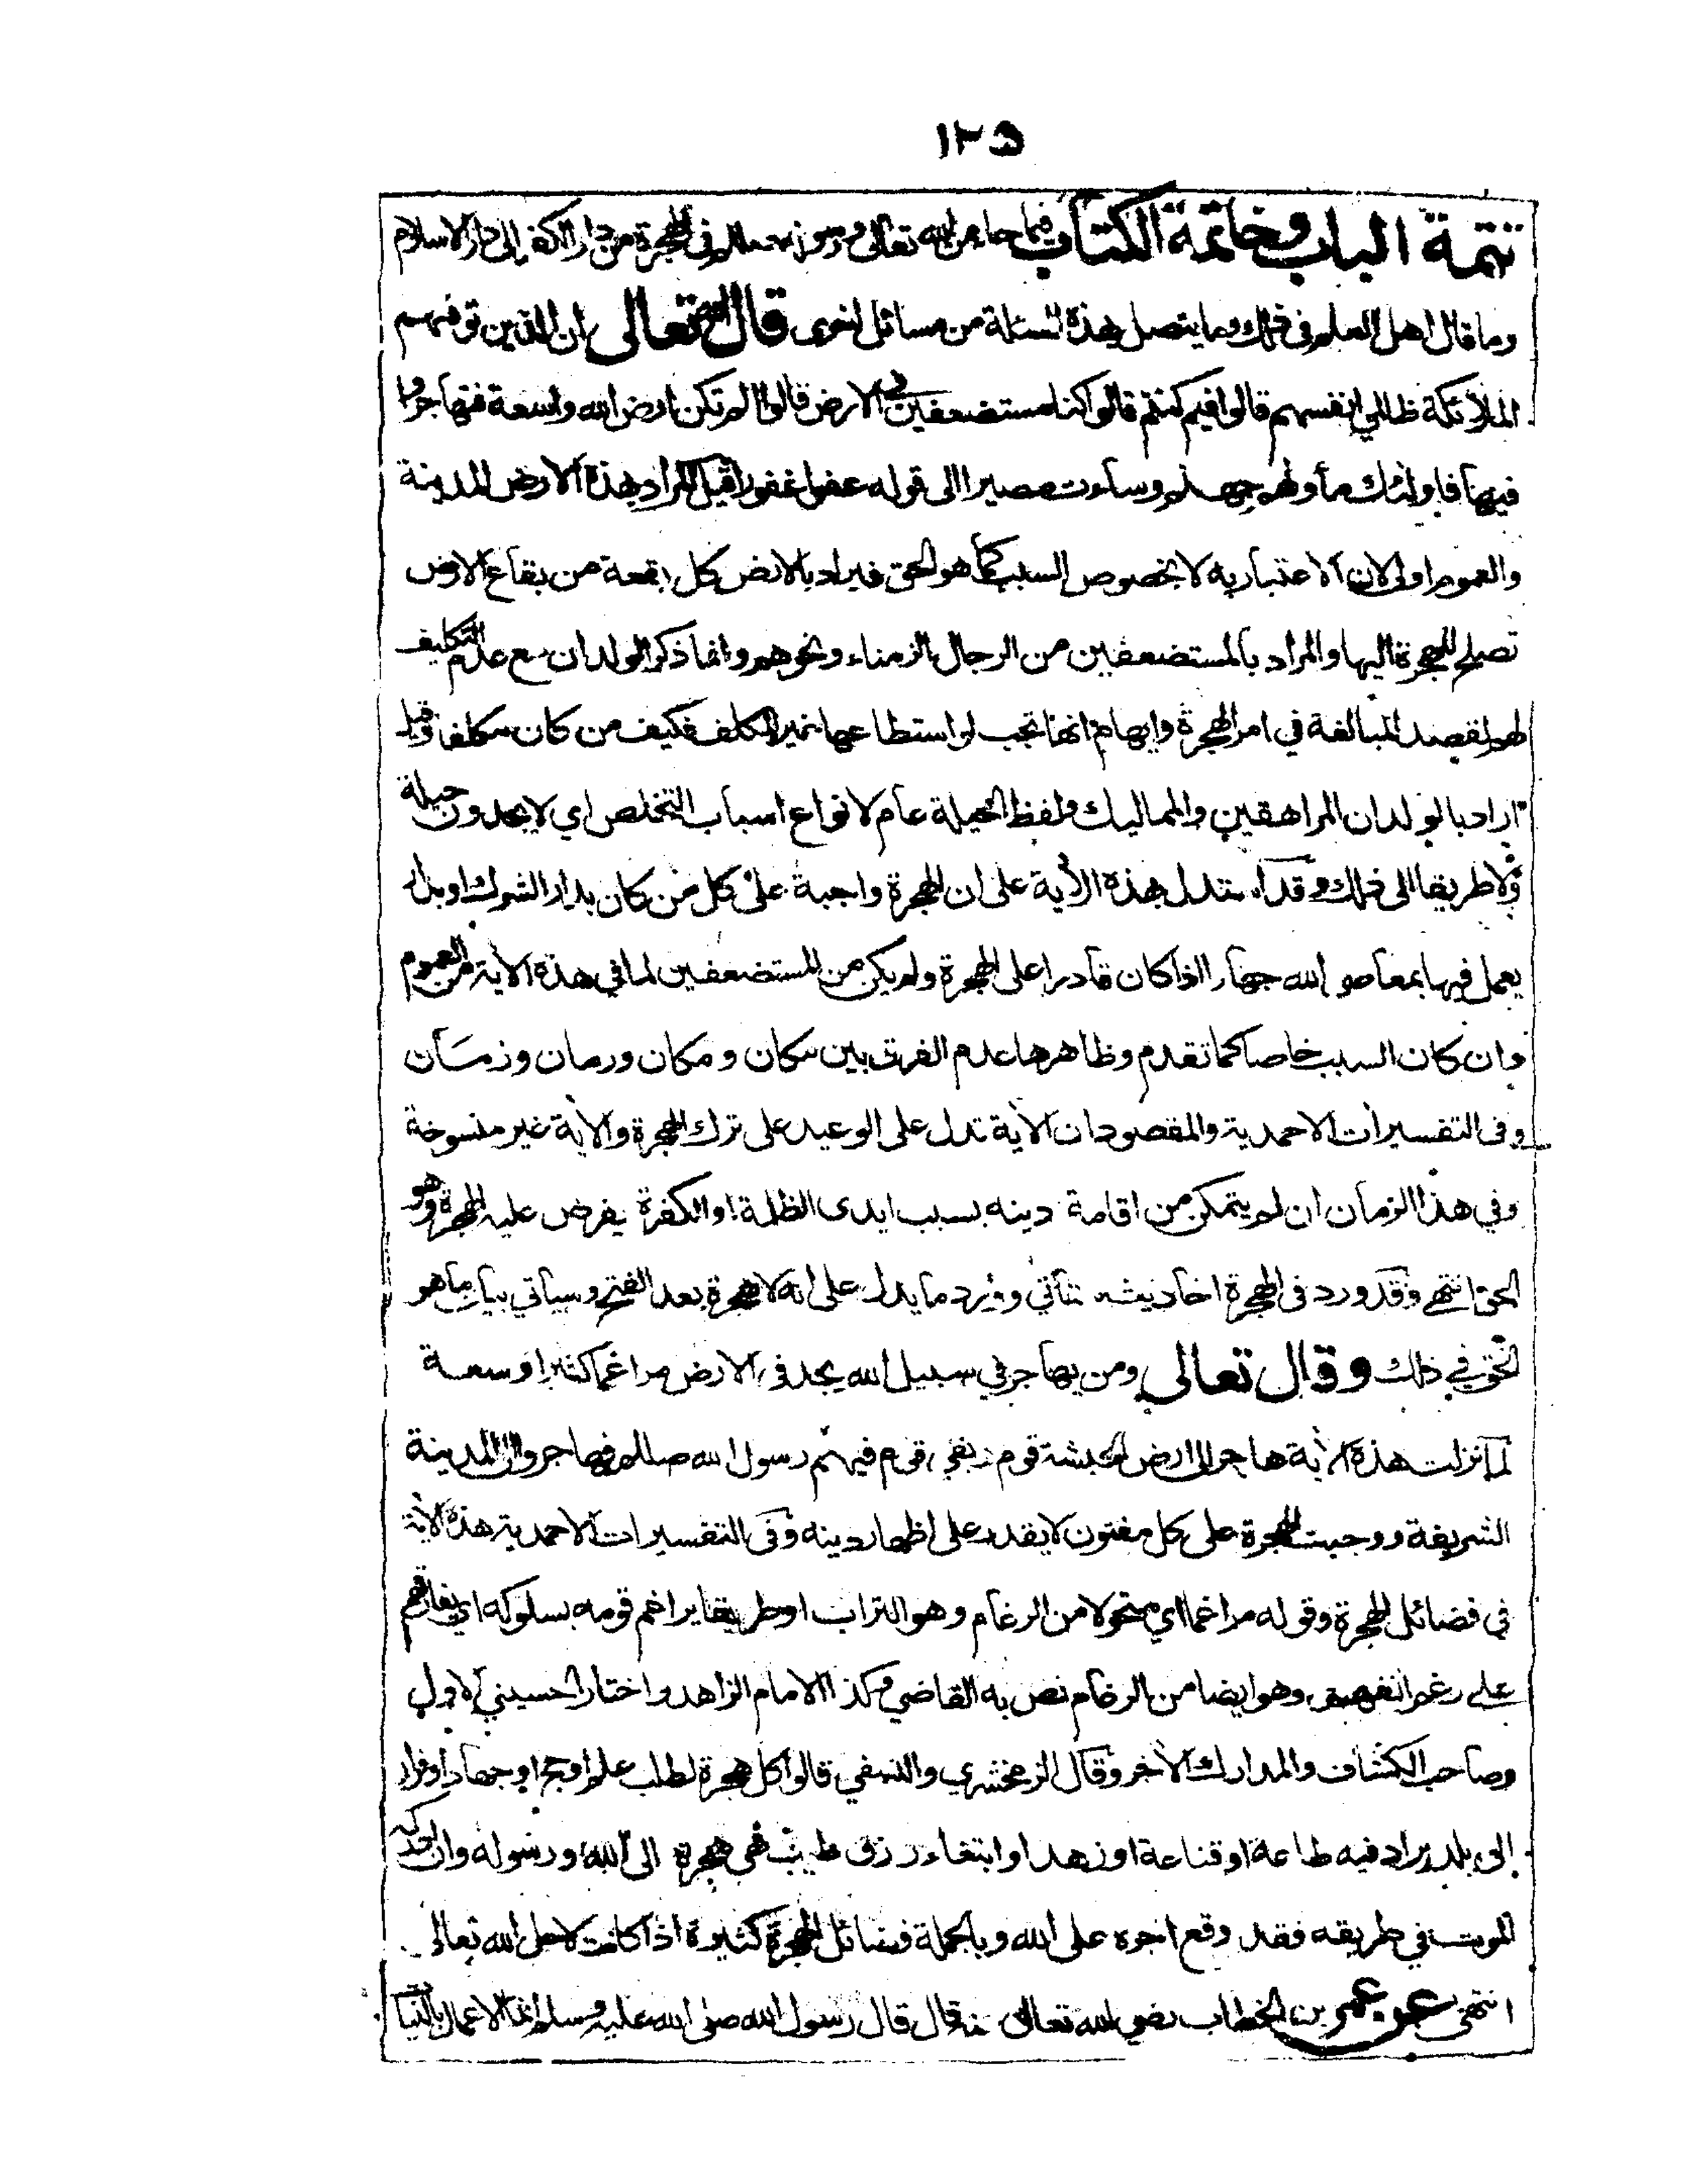 ١٢٥
تتمة الباب وخاتمة الكتاب فيما جاء عن الله تعالى ورسوله صللم في الهجرة من دار الكفر الى دار الاسلام
وما قال اهل العلم في ذلك وما يتصل بهذه المسئلة من مسائل اخرى قال الله تعالى ان الذين توفهم
الملائكة ظالمي انفسهم قالوا فيم كنتم قالوا كنا مستضعفين في الارض قالوا الم تكن ارض الله واسعة فتهاجروا
فيها فاولئك مأوىهم جهنم وساءت مصيرا الى قوله عفوا غفورا قيل المراد بهذه الارض المدينة
والعموم اولى لان الاعتبار به لا بخصوص السبب كما هو الحق فيراد بالارض كل بقعة من بقاع الارض
تصلح للهجرة اليها والمراد بالمستضعفين من الرجال الزمناء ونحوهم وانما ذكر الولدان مع عدم التكليف
لهم لقصد المبالغة في امر الهجرة وايهام انها تجب لو استطاعها غير المكلف فكيف من كان مكلفا وقيل
اراد بالولدان المراهقين والمماليك ولفظ الحيلة عام لانواع اسباب التخلص اي لا يجدون حيلة
ولا طريقا الى ذلك وقد استدل بهذه الأية على ان الهجرة واجبة على كل من كان بدار الشرك او بدار
يعمل فيها بمعاصي الله جهارا اذا كان قادرا على الهجرة ولم يكن من المستضعفين لما في هذه الاية من العموم
وان كان السبب خاصا كما تقدم وظاهرها عدم الفرق بين مكان ومكان وزمان وزمان
وفى التفسيرات الاحمدية والمقصود ان الأية تدل على الوعيد على ترك الهجرة والأية غير منسوخة
وفي هذا الزمان ان لم يتمكن من اقامة دينه بسبب ايدى الظلمة او الكفرة يفرض عليه الهجرة وهو
الحق انتهى وقد ورد فى الهجرة احاديث ستأتي وورد ما يدل على انه لا هجرة بعد الفتح وسيأتي بيان ما هو
الحق في ذلك وقال تعالى ومن يهاجر في سبيل الله يجد فى الارض مراغما كثيرا وسعة
لما نزلت هذه الأية هاجر الى ارض الحبشة قوم وبقي قوم فيهم رسول الله صللم فهاجروا الى المدينة
الشريفة ووجبت الهجرة على كل مفتون لا يقدر على اظهار دينه وفى التفسيرات الاحمدية هذه الأية
في فضائل الهجرة وقوله مراغما اي متحولا من الرغام وهو التراب او طريقا يراغم قومه بسلوكه اي يفارقهم
على رغم انفهم وهو ايضا من الرغام نص به القاضي وكذا الامام الزاهد واختار الحسيني الاول
وصاحب الكشاف والمدارك الأخر وقال الزمخشري والنسفي قالوا كل هجرة لطلب علم او حج او جهاد او فرار
الى بلد يراد فيه طاعة او قناعة او زهدا او ابتغاء رزق طيب فهى هجرة الى الله ورسوله وان ادركه
الموت في طريقه فقد وقع اجره على الله وبالجملة فضائل الهجرة كثيرة اذا كانت لاجل الله تعالى
انتهى عن عمر بن الخطاب رضي الله تعالى عنه قال قال رسول الله صلى الله عليه وسلم انما الاعمال بالنيات